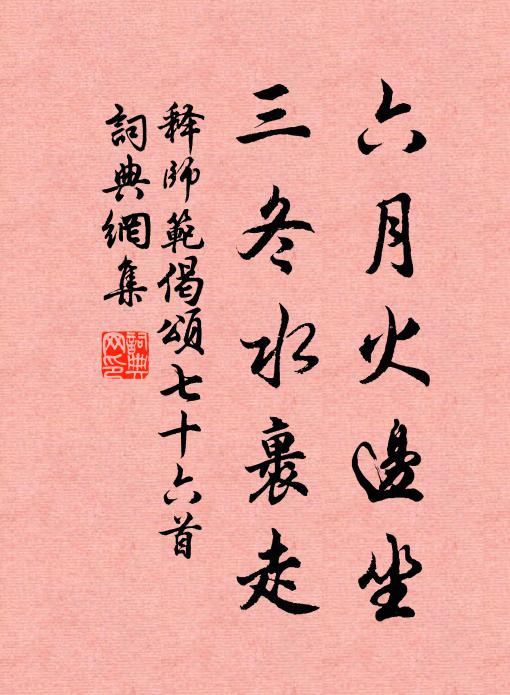 六月火邊坐
三冬水裹走
释師範偈頌七十六首
詞典網集
詞典网印